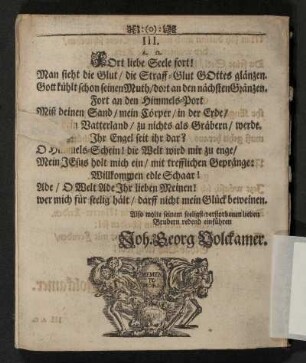 :(o):
III.
FOrt liebe Seele fort!
Man sieht die Glut / die Straff-Glut GOttes glänzen.
Gott kühlt schon seinen Muth / dort an den nächsten Gränzen.
Fort an den Himmels-Port
Miß deinen Sand / mein Cörper / in der Erde /
Vatterland / zu nichts als Gräbern / werde.
Ihr Engel seit ihr dar?
O Schein! die Welt wird mir zu enge /
Mein JEsus holt mich ein / mit trefflichen Gepränge:
Willkommen edle Schaar!
Ade / O Welt Ade Ihr lieben Meinen!
wer mich für seelig hält / darff nicht mein Glück beweinen.
Also wolte seinem seeligst-verstorbenen lieben
Brudern redend einführen
Joh. Georg Volckamer.